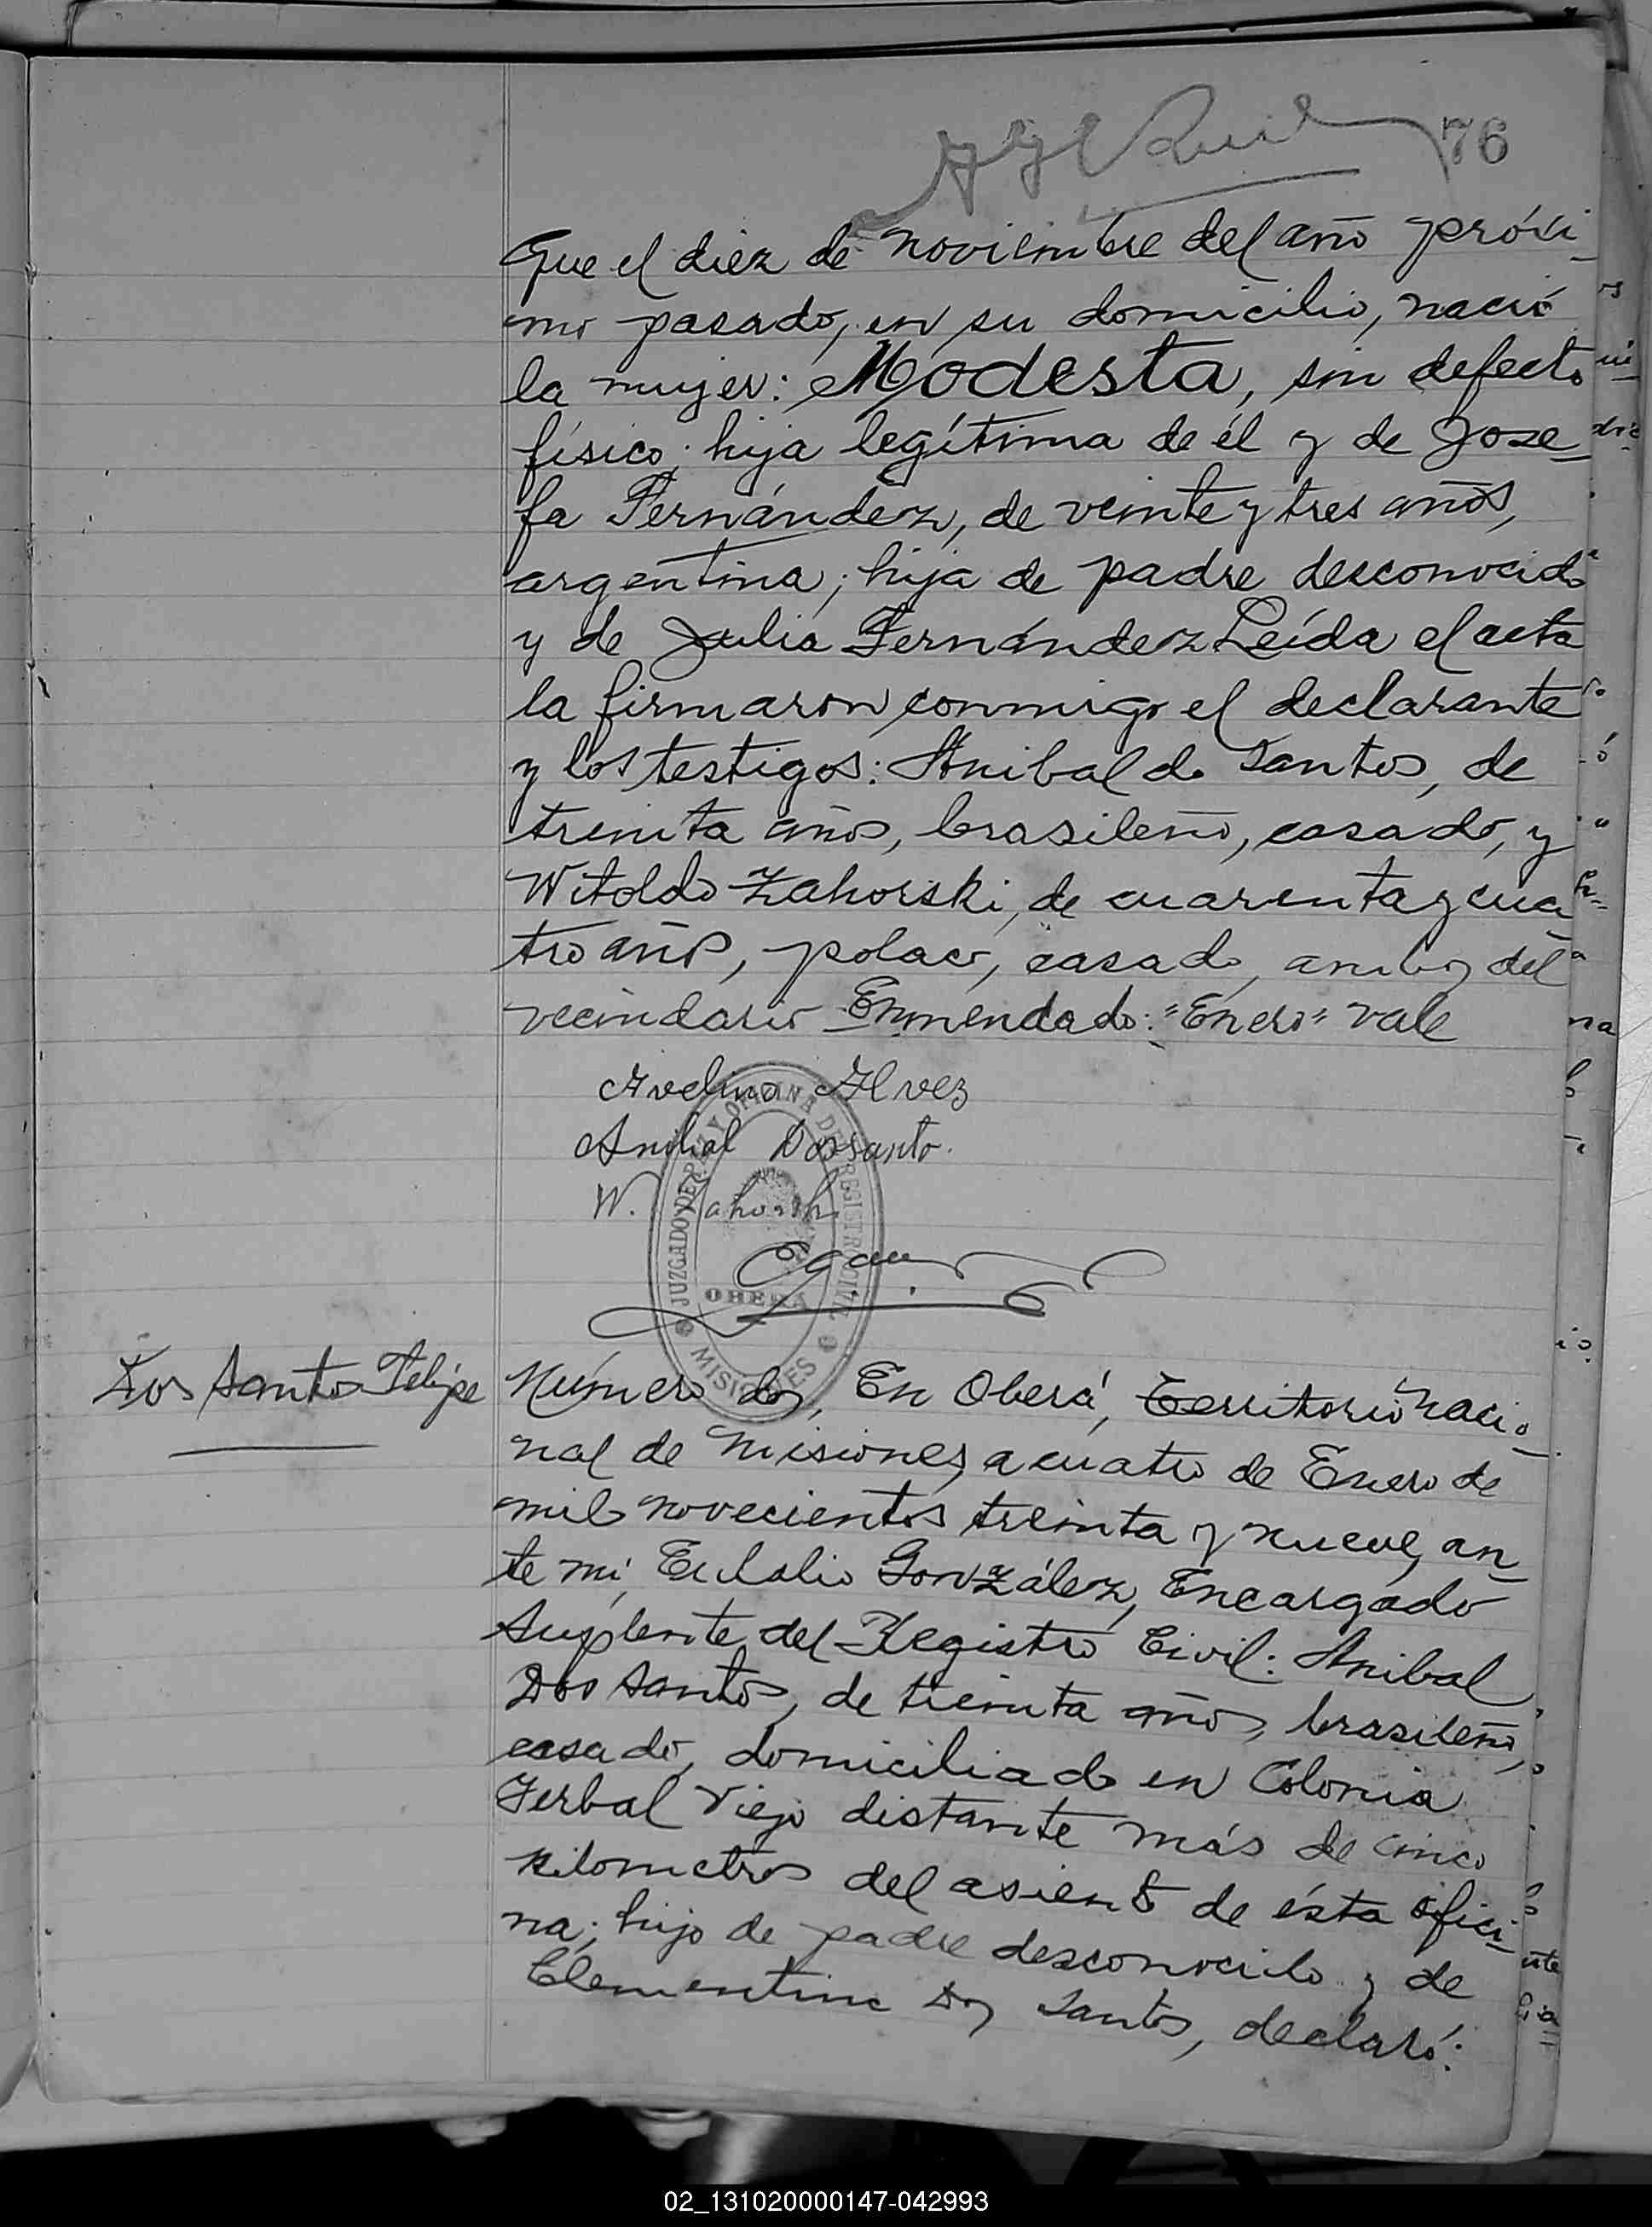 76
Que el diez de noviembre del año próxi-
mo pasado, en su domicilio, nació
la mujer: Modesta, sin defecto
físico; hija legítima de él y de Jose-
fa Fernández, de veinte y tres años,
argentina; hija de padre desconocido
y de Julia Fernández Leída el acta
la firmaron conmigo el declarante
y los testigos: Anibal do Santos, de
treinta años, brasileño, casado, y
Witoldo Zahorski, de cuarenta y cua
tro años, polaco, casado, ambos del
vecindario Enmendado: "Enero" vale
Avelino Alvez
Anibal Dossanto.
W. Zahorski
JUZGADO DE PAZ Y OFICINA DEL REGISTRO CIVIL
OBERÁ
MISIONES
Dos Santos Felipe
Número dos, En Oberá, Territorio Nacio-
nal de Misiones, a cuatro de Enero de
mil novecientos treinta y nueve, an-
te mí, Eulalio González, Encargado
Suplente del Registro Civil: Anibal
Dos Santos, de treinta años, brasileño,
casado, domiciliado en Colonia
Yerbal Viejo distante más de cinco
kilometros del asiento de ésta ofici-
na; hijo de padre desconocido y de
Clementina Dos Santos, declaró:
02_131020000147-042993